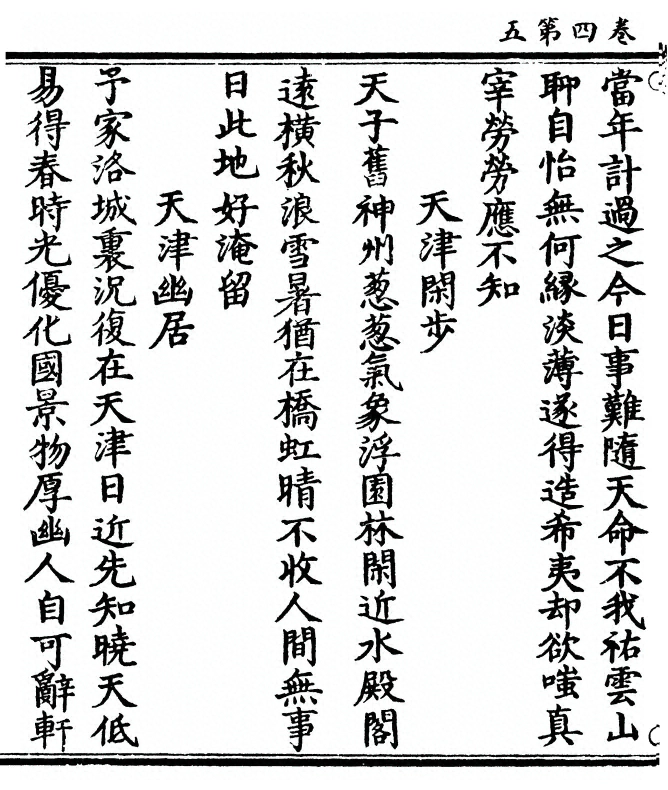 卷四第五
當年計過之今日事難隨天命不我祐雲山
聊自怡無何緣淡薄遂得造希夷却欲嗤真
宰勞勞應不知
天津閑步
天子舊神州葱葱氣象浮園林閑近水殿閣
遠橫秋浪雪暑猶在橋虹晴不收人間無事
日此地好淹留
天津幽居
予家洛城裏況復在天津日近先知曉天低
易得春時光優化國景物厚幽人自可辭軒